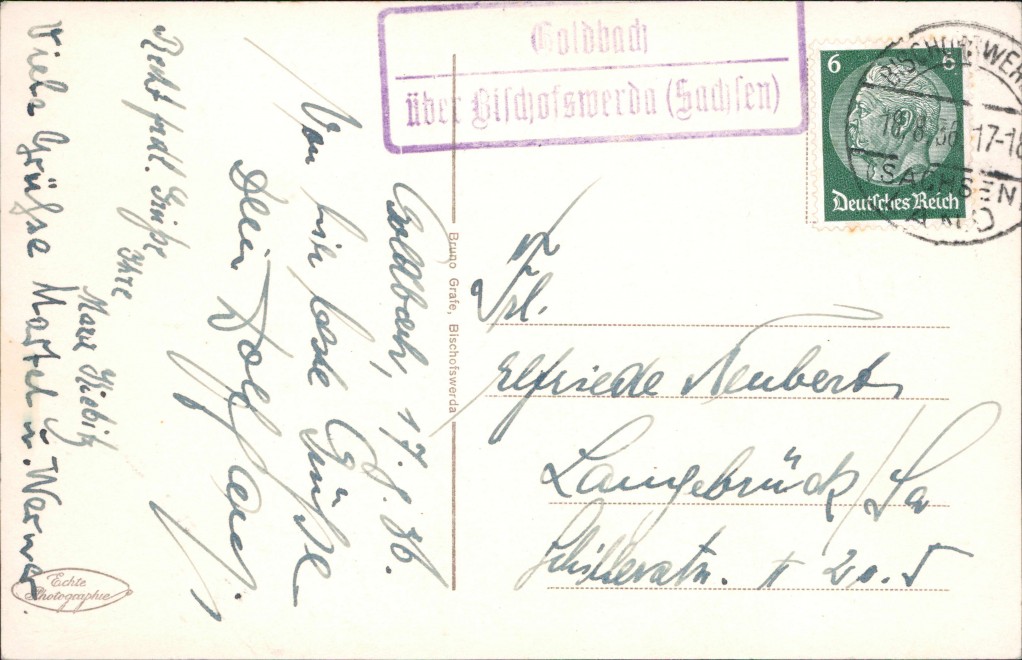 Goldbach
über Bischofswerda (Sachsen)
6 6
Deutsches Reich
BISCHOFSWERDA
17-18
(SACHSEN)
Goldbach, 17.8.36.
Von hier beste Grüße
Dein
Recht frdl. Grüße
Ihre
Viele Grüße Martel u. Werner.
Bruno Grafe, Bischofswerda
Frl.
Elfriede Neubert
Langebrück/Sa
Schillerstr.
Echte
Photographie